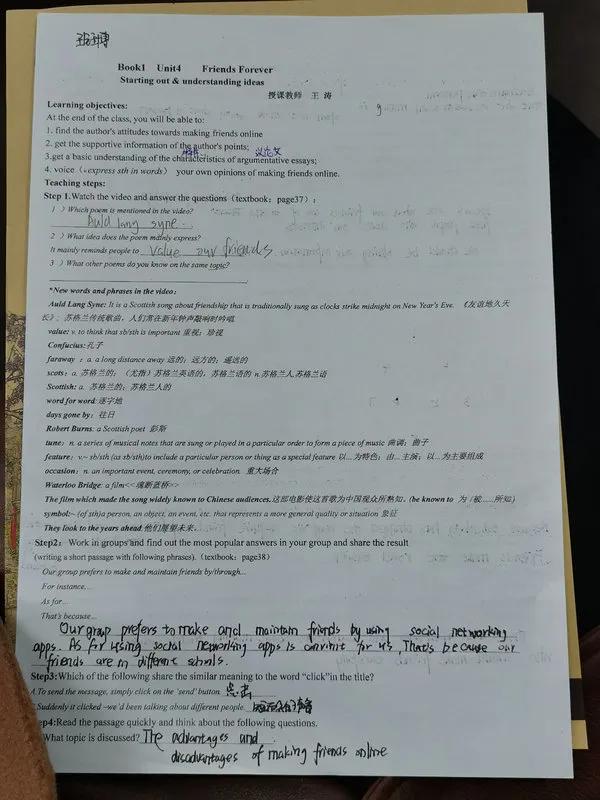 Book1 Unit4 Friends Forever
Starting out & understanding ideas
授课教师 王 涛
Learning objectives:
At the end of the class, you will be able to:
1. find the author's attitudes towards making friends online
2. get the supportive information of the author's points;
特征 议论文
3.get a basic understanding of the characteristics of argumentative essays;
4. voice (=express sth in words) your own opinions of making friends online.
Teaching steps:
Step 1.Watch the video and answer the questions (textbook: page37) :
1 ) Which poem is mentioned in the video?
Auld lang syne.
2 ) What idea does the poem mainly express?
It mainly reminds people to value our friends
3 ) What other poems do you know on the same topic?
*New words and phrases in the video:
Auld Lang Syne: It is a Scottish song about friendship that is traditionally sung as clocks strike midnight on New Year's Eve. 《友谊地久天
长》, 苏格兰传统歌曲, 人们常在新年钟声敲响时吟唱
value: v. to think that sb/sth is important 重视; 珍视
Confucius:孔子
faraway : a. a long distance away 远的; 远方的; 遥远的
scots: a. 苏格兰的; (尤指)苏格兰英语的, 苏格兰语的 n.苏格兰人,苏格兰语
Scottish: a. 苏格兰的; 苏格兰人的
word for word:逐字地
days gone by: 往日
Robert Burns: a Scottish poet 彭斯
tune: n. a series of musical notes that are sung or played in a particular order to form a piece of music 曲调; 曲子
feature: v.~ sb/sth (as sb/sth)to include a particular person or thing as a special feature 以…为特色; 由…主演; 以…为主要组成
occasion: n. an important event, ceremony, or celebration. 重大场合
Waterloo Bridge: a film<<魂断蓝桥>>
The film which made the song widely known to Chinese audiences.这部电影使这首歌为中国观众所熟知. (be known to 为/被……所知)
symbol:~ (of sth)a person, an object, an event, etc. that represents a more general quality or situation 象征
They look to the years ahead:他们展望未来.
Step2: Work in groups and find out the most popular answers in your group and share the result
(writing a short passage with following phrases). (textbook: page38)
Our group prefers to make and maintain friends by/through...
For instance,...
As for...
That's because...
Our group prefers to make and maintain friends by using social networking
apps. As for using social networking apps is for us, That's because our
friends are in different
Step3:Which of the following share the similar meaning to the word "click"in the title?
A.To send the message, simply click on the 'send' button. 点击
Suddenly it clicked –we'd been talking about different people.
ep4:Read the passage quickly and think about the following questions.
What topic is discussed? The advantages and
disadvantages of making friends online